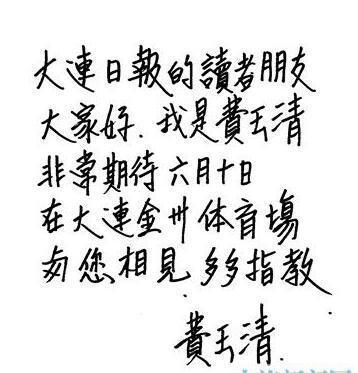 大連日報的讀者朋友
大家好.我是費玉清
非常期待六月十日
在大連金州体育場
与您相見多多指教
費玉清.